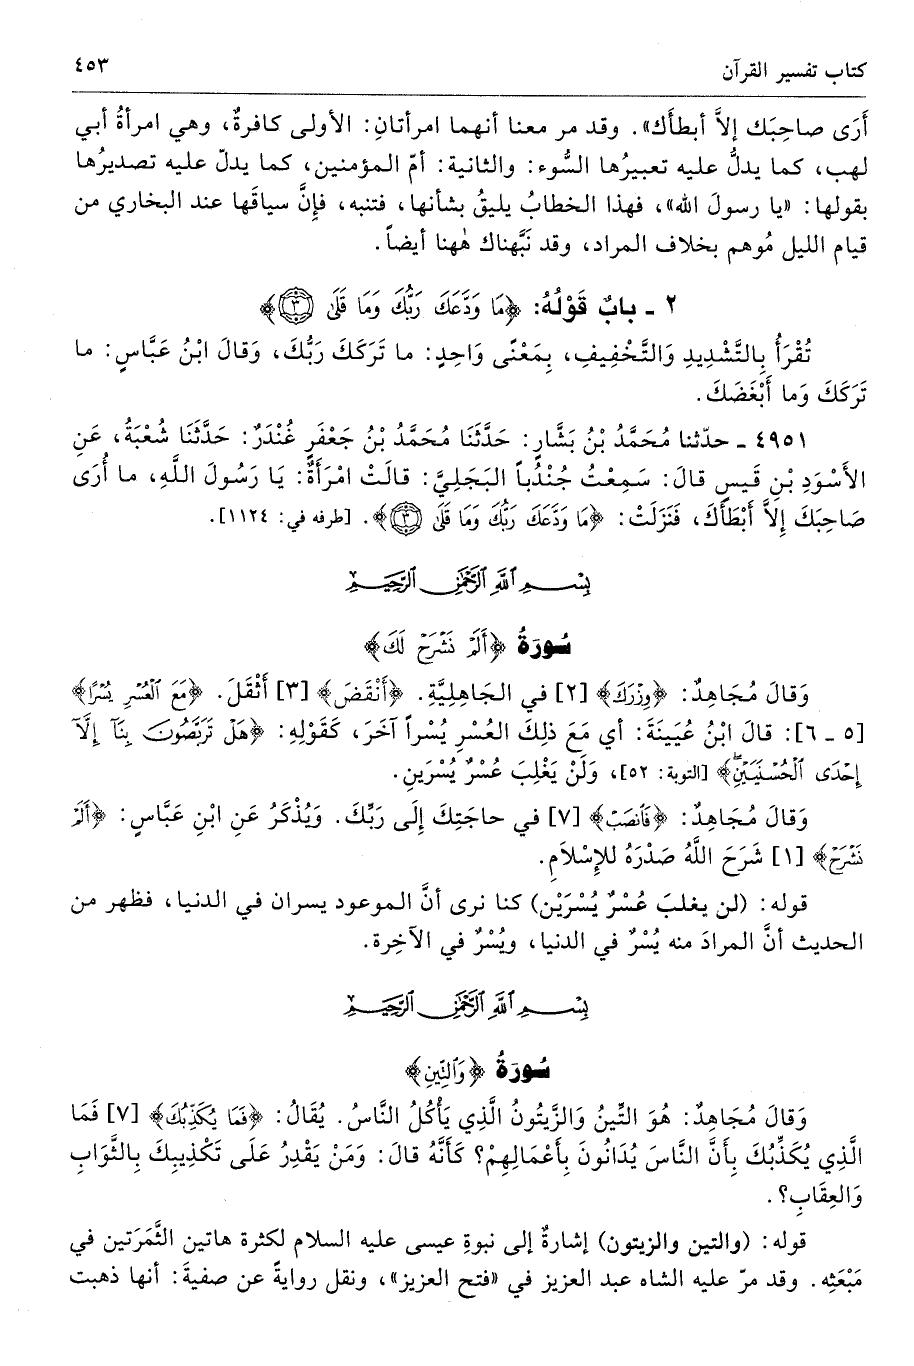 كتاب تفسير القرآن ٤٥٣
أَرَى صاحِبَك إلاَّ أبطأَك». وقد مر معنا أنهما امرأتانِ: الأولى كافرةٌ، وهي امرأةُ أبي
لهب، كما يدلُّ عليه تعبيرُها السُّوء: والثانية: أمّ المؤمنين، كما يدلّ عليه تصديرُها
بقولها: «يا رسولَ الله»، فهذا الخطابُ يليقُ بشأنها، فتنبه، فإنَّ سياقَها عند البخاري من
قيام الليل مُوهم بخلاف المراد، وقد نَبَّهناك هٰهنا أيضاً.
٢ ـ بابٌ قَوْلُهُ: ﴿مَا وَدَّعَكَ رَبُّكَ وَمَا قَلَىٰ ٣﴾
تُقْرَأُ بِالتَّشْدِيدِ وَالتَّخْفِيفِ، بِمَعْنًى وَاحِدٍ: ما تَرَكَكَ رَبُّكَ، وَقالَ ابْنُ عَبَّاسٍ: ما
تَرَكَكَ وَما أَبْغَضَكَ.
٤٩٥١ ـ حدّثنا مُحَمَّدُ بْنُ بَشَّارٍ: حَدَّثَنَا مُحَمَّدُ بْنُ جَعْفَرٍ غُنْدَرٌ: حَدَّثَنَا شُعْبَةُ، عَنِ
الأَسْوَدِ بْنِ قَيسٍ قالَ: سَمِعْتُ جُنْدُباً البَجَلِيَّ: قالَتْ امْرَأَةٌ: يَا رَسُولَ اللَّهِ، ما أُرَى
صَاحِبَكَ إِلاَّ أَبْطَأَكَ، فَنَزَلَتْ: ﴿مَا وَدَّعَكَ رَبُّكَ وَمَا قَلَىٰ ٣﴾. [طرفه في: ١١٢٤].
بِسْمِ ٱللَّهِ ٱلرَّحْمَٰنِ ٱلرَّحِيمِ
سُورَةُ ﴿أَلَمْ نَشْرَحْ لَكَ﴾
وَقالَ مُجَاهِدٌ: ﴿وِزْرَكَ﴾ [٢] في الجَاهِلِيَّةِ. ﴿أَنْقَضَ﴾ [٣] أَثْقَلَ. ﴿مَعَ ٱلْعُسْرِ يُسْرًا﴾
[٥ ـ ٦]: قالَ ابْنُ عُيَينَةَ: أي مَعَ ذلِكَ العُسْرِ يُسْراً آخَرَ، كَقَوْلِهِ: ﴿هَلْ تَرَبَّصُونَ بِنَآ إِلَّآ
إِحْدَى ٱلْحُسْنَيَيْنِۖ﴾ [التوبة: ٥٢]، وَلَنْ يَغْلِبَ عُسْرٌ يُسْرَينِ.
وَقالَ مُجَاهِدٌ: ﴿فَٱنصَبْ﴾ [٧] في حاجَتِكَ إِلَى رَبِّكَ. وَيُذْكَرُ عَنِ ابْنِ عَبَّاسٍ: ﴿أَلَمْ
نَشْرَحْ﴾ [١] شَرَحَ اللَّهُ صَدْرَهُ للإِسْلاَمِ.
قوله: (لن يغلبَ عُسْرٌ يُسْرَيْن) كنا نرى أنَّ الموعود يسران في الدنيا، فظهر من
الحديث أنَّ المرادَ منه يُسْرٌ في الدنيا، ويُسْرٌ في الآخِرة.
بِسْمِ ٱللَّهِ ٱلرَّحْمَٰنِ ٱلرَّحِيمِ
سُورَةُ ﴿وَٱلتِّينِ﴾
وَقالَ مُجَاهِدٌ: هُوَ التِّينُ وَالزَّيتُونُ الَّذِي يَأْكُلُ النَّاسُ. يُقَالُ: ﴿فَمَا يُكَذِّبُكَ﴾ [٧] فَمَا
الَّذِي يُكَذِّبُكَ بِأَنَّ النَّاسَ يُدَانُونَ بِأَعْمَالِهِمْ؟ كَأَنَّهُ قالَ: وَمَنْ يَقْدِرُ عَلَى تَكْذِيبِكَ بِالثَّوَابِ
وَالعِقَابِ؟.
قوله: (والتين والزيتون) إشارةٌ إلى نبوةِ عيسى عليه السلام لكثرة هاتين الثَّمَرَتين في
مَبْعَثِه. وقد مرّ عليه الشاه عبد العزيز في «فتح العزيز»، ونقل روايةً عن صفيةَ: أنها ذهبت